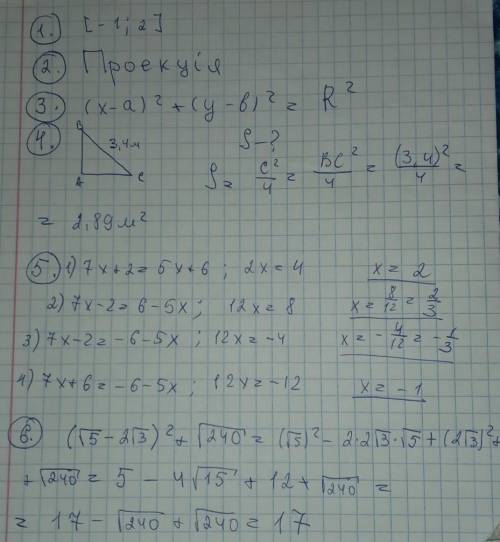 1. [-1; 2]
2. Проекція
3. (x-a)² + (y-b)² = R²
4. B
3,4 м
A C
S-?
S = C²/4 = BC²/4 = (3,4)²/4 =
= 2,89 м²
5. 1) 7x+2 = 5x+6 ; 2x = 4 x = 2
2) 7x-2 = 6-5x ; 12x = 8 x = 8/12 = 2/3
3) 7x-2 = -6-5x ; 12x = -4 x = -4/12 = -1/3
4) 7x+6 = -6-5x ; 12x = -12 x = -1
6. (√5-2√3)² + √240 = (√5)² - 2·2√3·√5 + (2√3)² +
+ √240 = 5 - 4√15 + 12 + √240 =
= 17 - √240 + √240 = 17